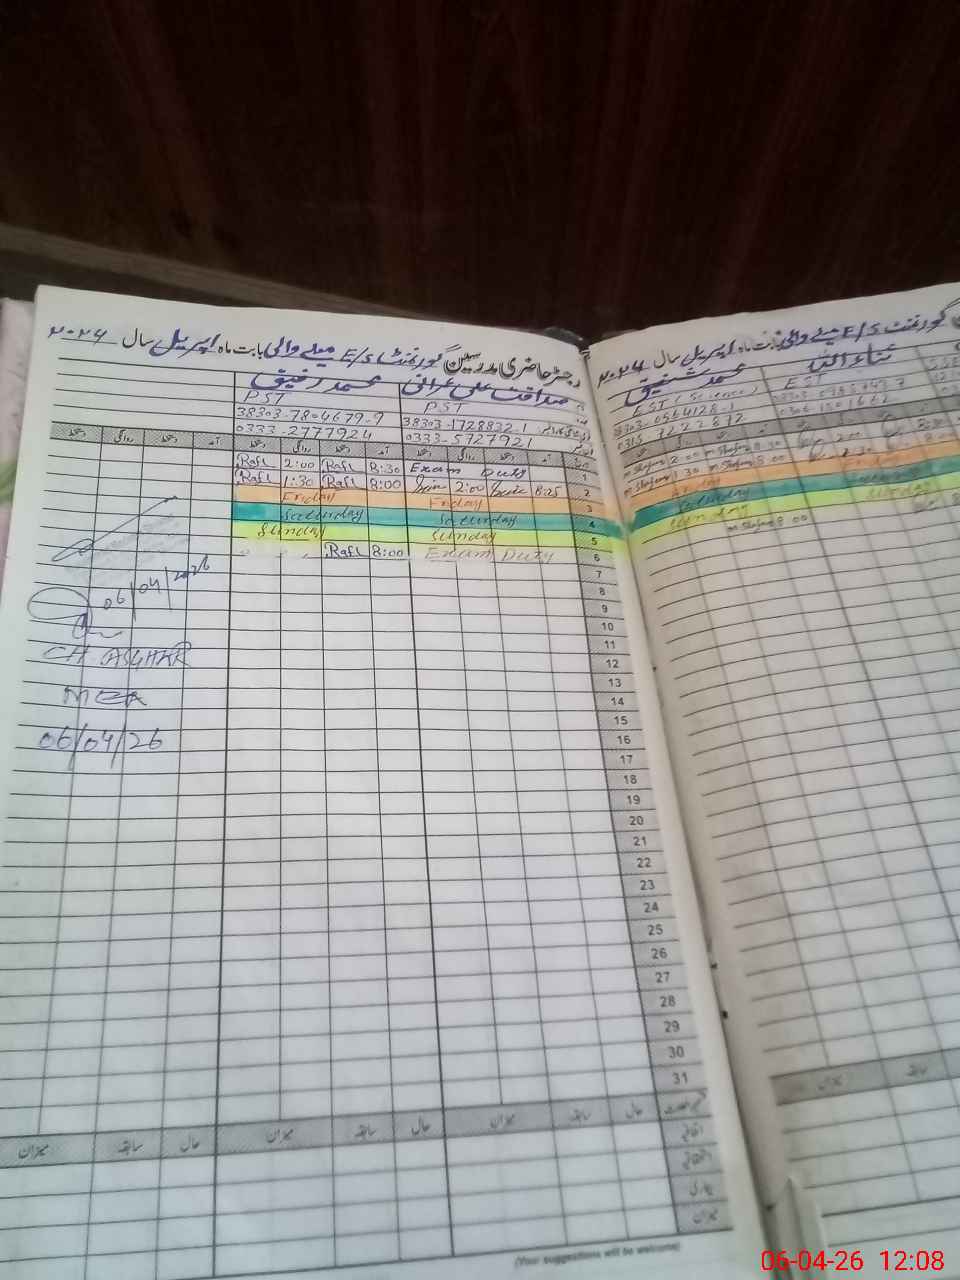 رجسٹر حاضری مدرسین گورنمنٹ E/S میلے والی بابت ماہ اپریل سال ۲۰۲۶
صداقت علی عرفانی محمد رفیق
PST PST
38303-1728832-1 38303-7804679-9
0333-5727921 0333-2777924
1 Exam Duty 8:30 Rafi 2:00 Rafi
2 8:25 2:00 8:00 Rafi 1:30 Rafi
3 Friday Friday
4 Saturday Saturday
5 Sunday Sunday
6 Exam Duty 8:00 Rafi
7
8
9
10
11
12
13
14
15
16
17
18
19
20
21
22
23
24
25
26
27
28
29
30
31
حال سابقہ میزان حال سابقہ میزان حال سابقہ میزان
اتفاقی
بیماری
میزان
(Your suggestions will be welcome)
06/04/2026
CH ASGHAR
MEA
06/04/26
گورنمنٹ E/S میلے والی بابت ماہ اپریل سال ۲۰۲۶
ثناء اللہ محمد شفیق
EST EST (Science)
38303-0564128-1
0315-7222872
2:00 m.Shafiq 8:30
1:30 m.Shafiq 8:00
Friday
Saturday
Sunday Sunday
m.Shafiq 8:00
میزان سابقہ
06-04-26 12:08